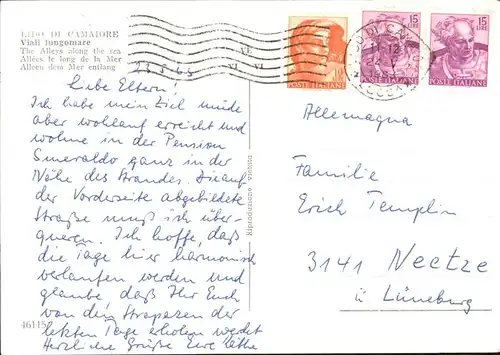 LIDO DI CAMAIORE
Viali lungomare
The Alleys along the sea
Allées le long de la Mer
Alleen dem Meer entlang
23.5.65
Liebe Eltern!
Ich habe mein Ziel müde
aber wohlauf erreicht und
wohne in der Pension
Smeraldo ganz in der
Nähe des Strandes. Die auf
der Vorderseite abgebildete
Straße muß ich über-
queren. Ich hoffe, daß
die Tage hier harmonisch
verlaufen werden und
glaube, daß Ihr Euch
von den Strapazen der
letzten Tage erholen werdet
Herzliche Grüße Eure Käthe
46115
Riproduzione vietata
POSTE ITALIANE
15
LIRE
POSTE ITALIANE
15
LIRE
POSTE ITALIANE
Allemagna
Familie
Erich Templin
3141 Neetze
ü Lüneburg